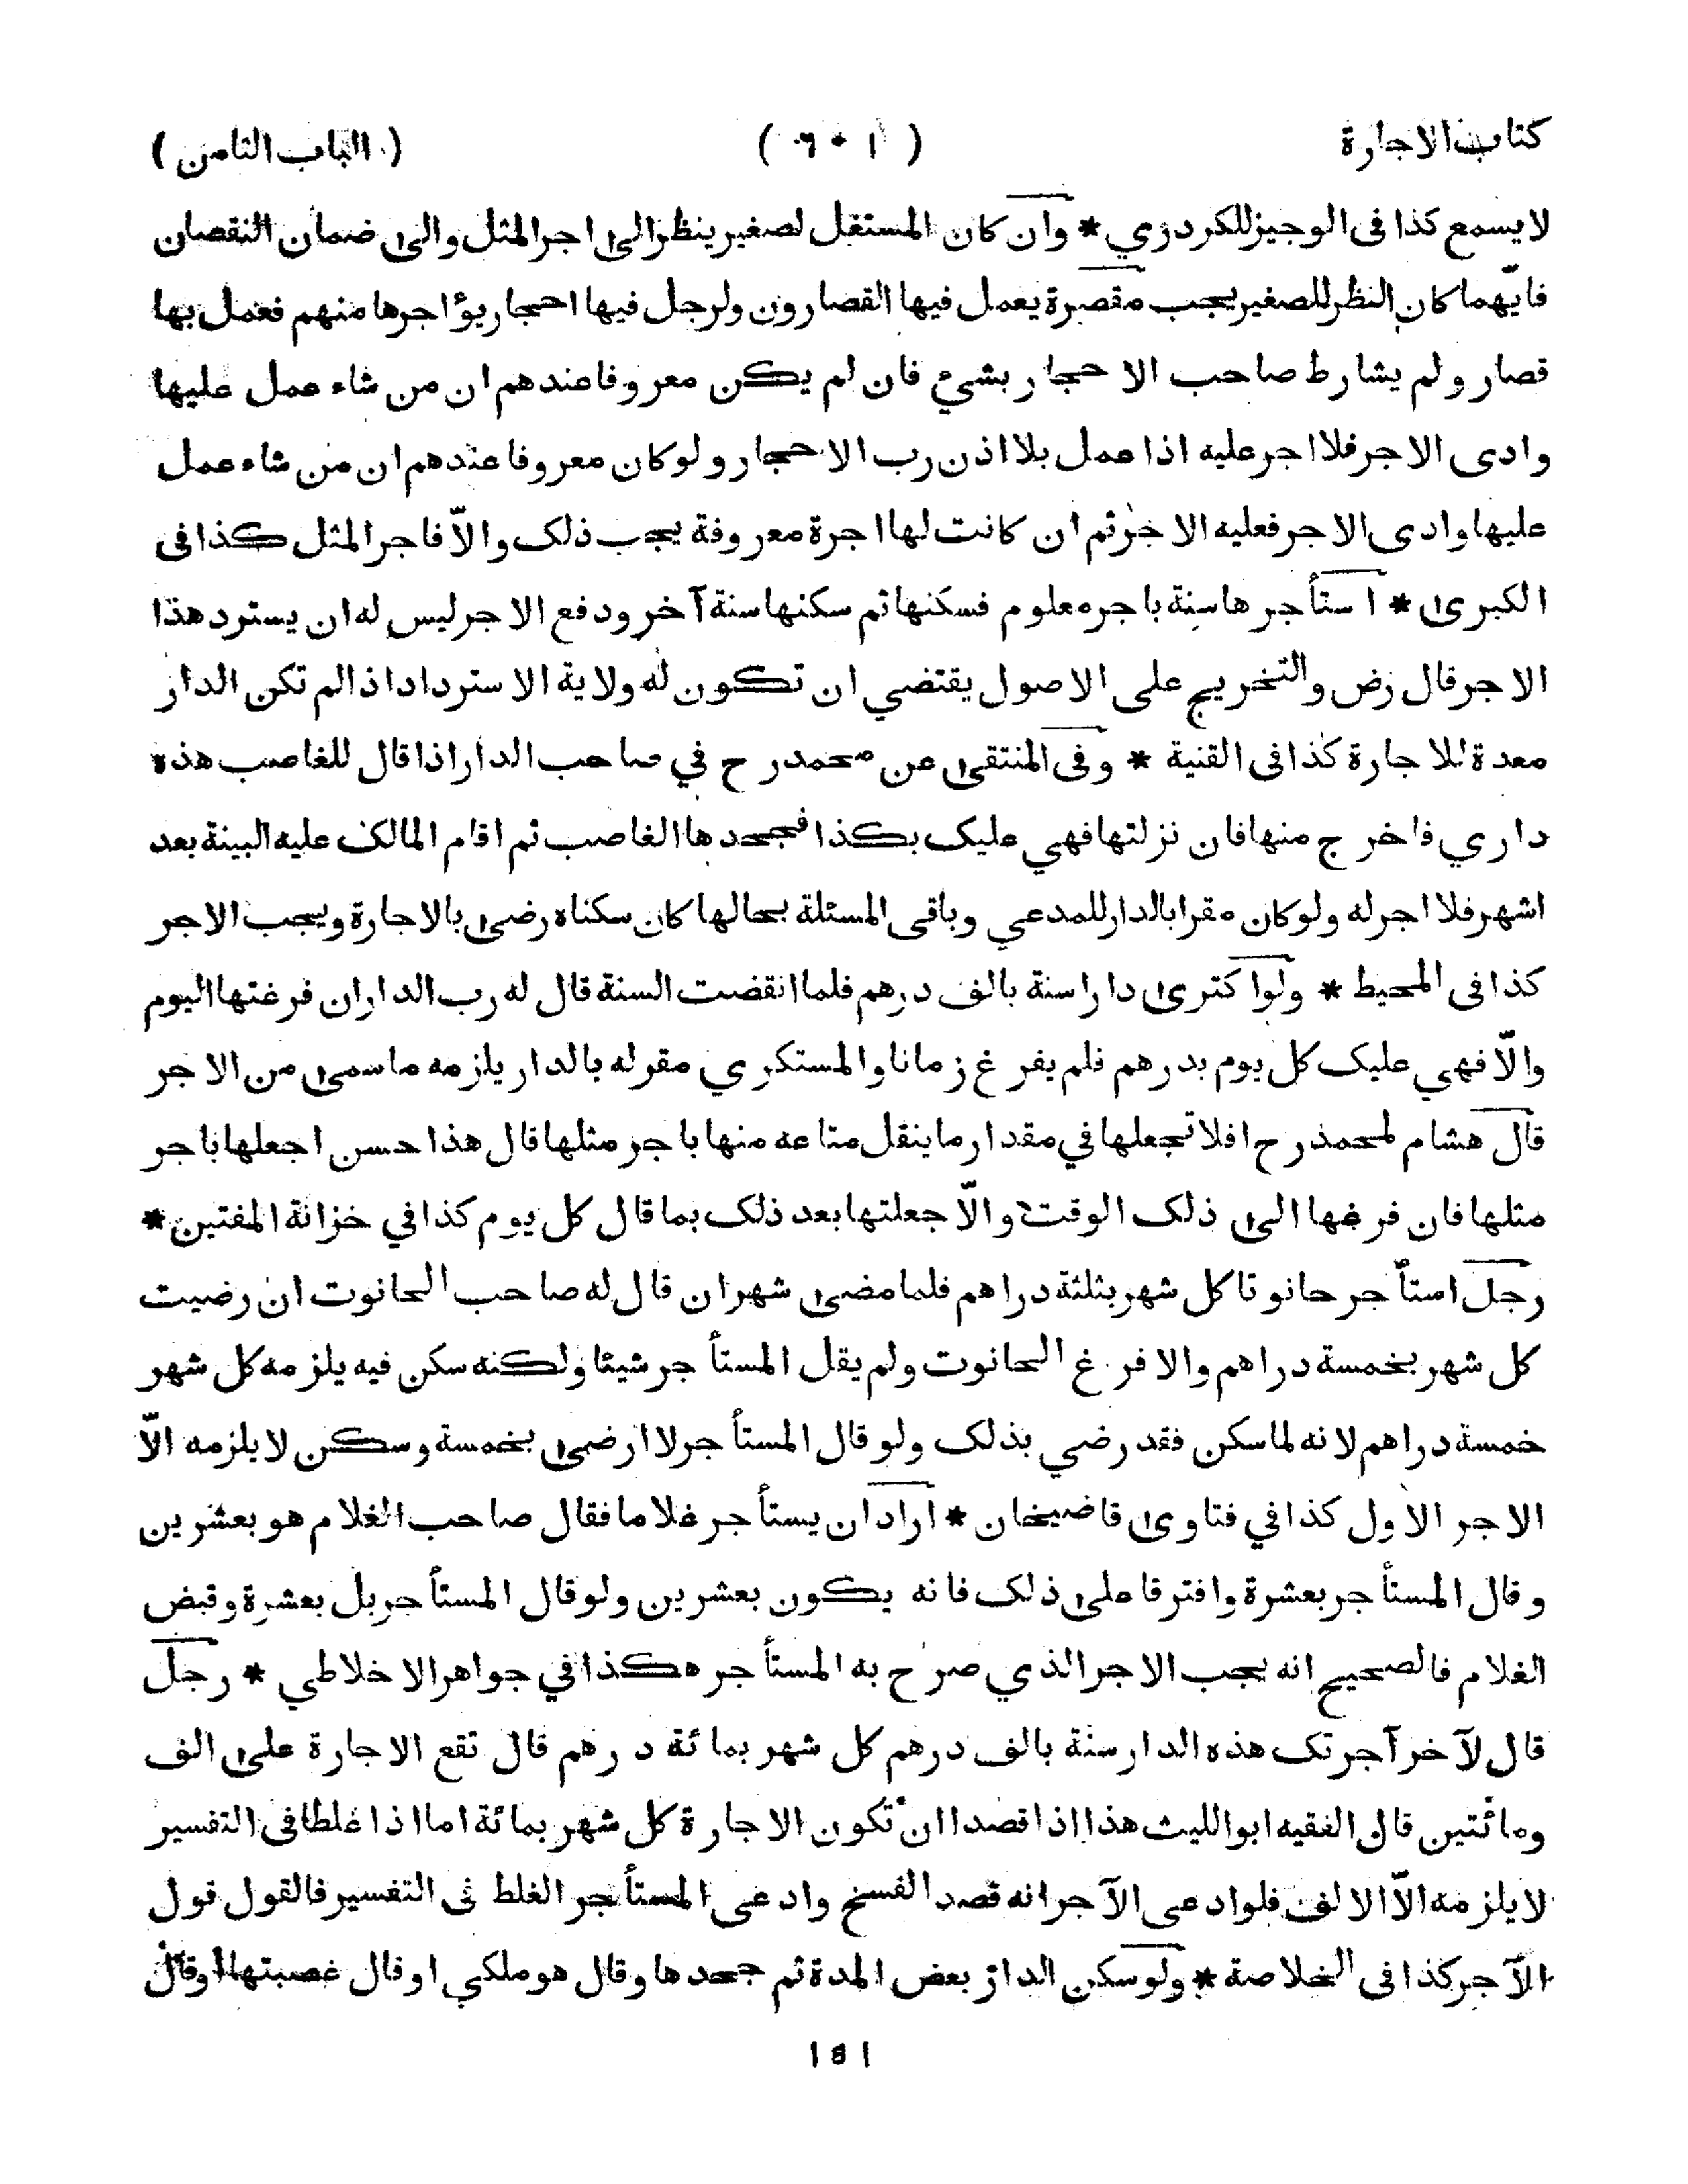 كتاب الاجارة ( ٦٠١ ) ( الباب الثامن )
لا يسمع كذا فى الوجيز للكردري * وان كان المستغل لصغير ينظر الى اجر المثل والى ضمان النقصان
فايّهما كان النظر للصغير يجب مقصرة يعمل فيها القصارون ولرجل فيها احجار يؤاجرها منهم فعمل بها
قصار ولم يشارط صاحب الاحجار بشيء فان لم يكن معروفا عندهم ان من شاء عمل عليها
وادى الاجر فلا اجر عليه اذا عمل بلا اذن رب الاحجار ولو كان معروفا عندهم ان من شاء عمل
عليها وادى الاجر فعليه الاجر ثم ان كانت لها اجرة معروفة يجب ذلك والاّ فاجر المثل كذا فى
الكبرى * استأجرها سنة باجر معلوم فسكنها ثم سكنها سنة آخر ودفع الاجر ليس له ان يسترد هذا
الاجر قال رض والتخريج على الاصول يقتضي ان تكون له ولاية الاسترداد اذا لم تكن الدار
معدة للاجارة كذا فى القنية * وفى المنتقى عن محمد رح في صاحب الدار اذا قال للغاصب هذه
داري فاخرج منها فان نزلتها فهي عليك بكذا فجحدها الغاصب ثم اقام المالك عليه البينة بعد
اشهر فلا اجر له ولو كان مقرا بالدار للمدعي وباقى المسئلة بحالها كان سكناه رضى بالاجارة ويجب الاجر
كذا فى المحيط * ولو اكترى دارا سنة بالف درهم فلما انقضت السنة قال له رب الدار ان فرغتها اليوم
والاّ فهي عليك كل يوم بدرهم فلم يفرغ زمانا والمستكري مقر له بالدار يلزمه ما سمى من الاجر
قال هشام لمحمد رح افلا تجعلها في مقدار ما ينقل متاعه منها باجر مثلها قال هذا حسن اجعلها باجر
مثلها فان فرغها الى ذلك الوقت والاّ جعلتها بعد ذلك بما قال كل يوم كذا في خزانة المفتين *
رجل استأجر حانوتا كل شهر بثلثة دراهم فلما مضى شهران قال له صاحب الحانوت ان رضيت
كل شهر بخمسة دراهم والا فرغ الحانوت ولم يقل المستأجر شيئا ولكنه سكن فيه يلزمه كل شهر
خمسة دراهم لانه لما سكن فقد رضي بذلك ولو قال المستأجر لا ارضى بخمسة وسكن لا يلزمه الاّ
الاجر الاول كذا في فتاوى قاضيخان * اراد ان يستأجر غلاما فقال صاحب الغلام هو بعشرين
وقال المستأجر بعشرة وافترقا على ذلك فانه يكون بعشرين ولو قال المستأجر بل بعشرة وقبض
الغلام فالصحيح انه يجب الاجر الذي صرح به المستأجر هكذا في جواهر الاخلاطي * رجل
قال لآخر آجرتك هذه الدار سنة بالف درهم كل شهر بمائة درهم قال تقع الاجارة على الف
ومائتين قال الفقيه ابو الليث هذا اذا قصدا ان تكون الاجارة كل شهر بمائة اما اذا غلطا فى التفسير
لا يلزمه الاّ الالف فلو ادعى الآجر انه قصد الفسخ وادعى المستأجر الغلط فى التفسير فالقول قول
الآجر كذا فى الخلاصة * ولو سكن الدار بعض المدة ثم جحدها وقال هو ملكي او قال غصبتها او قال
١٥١